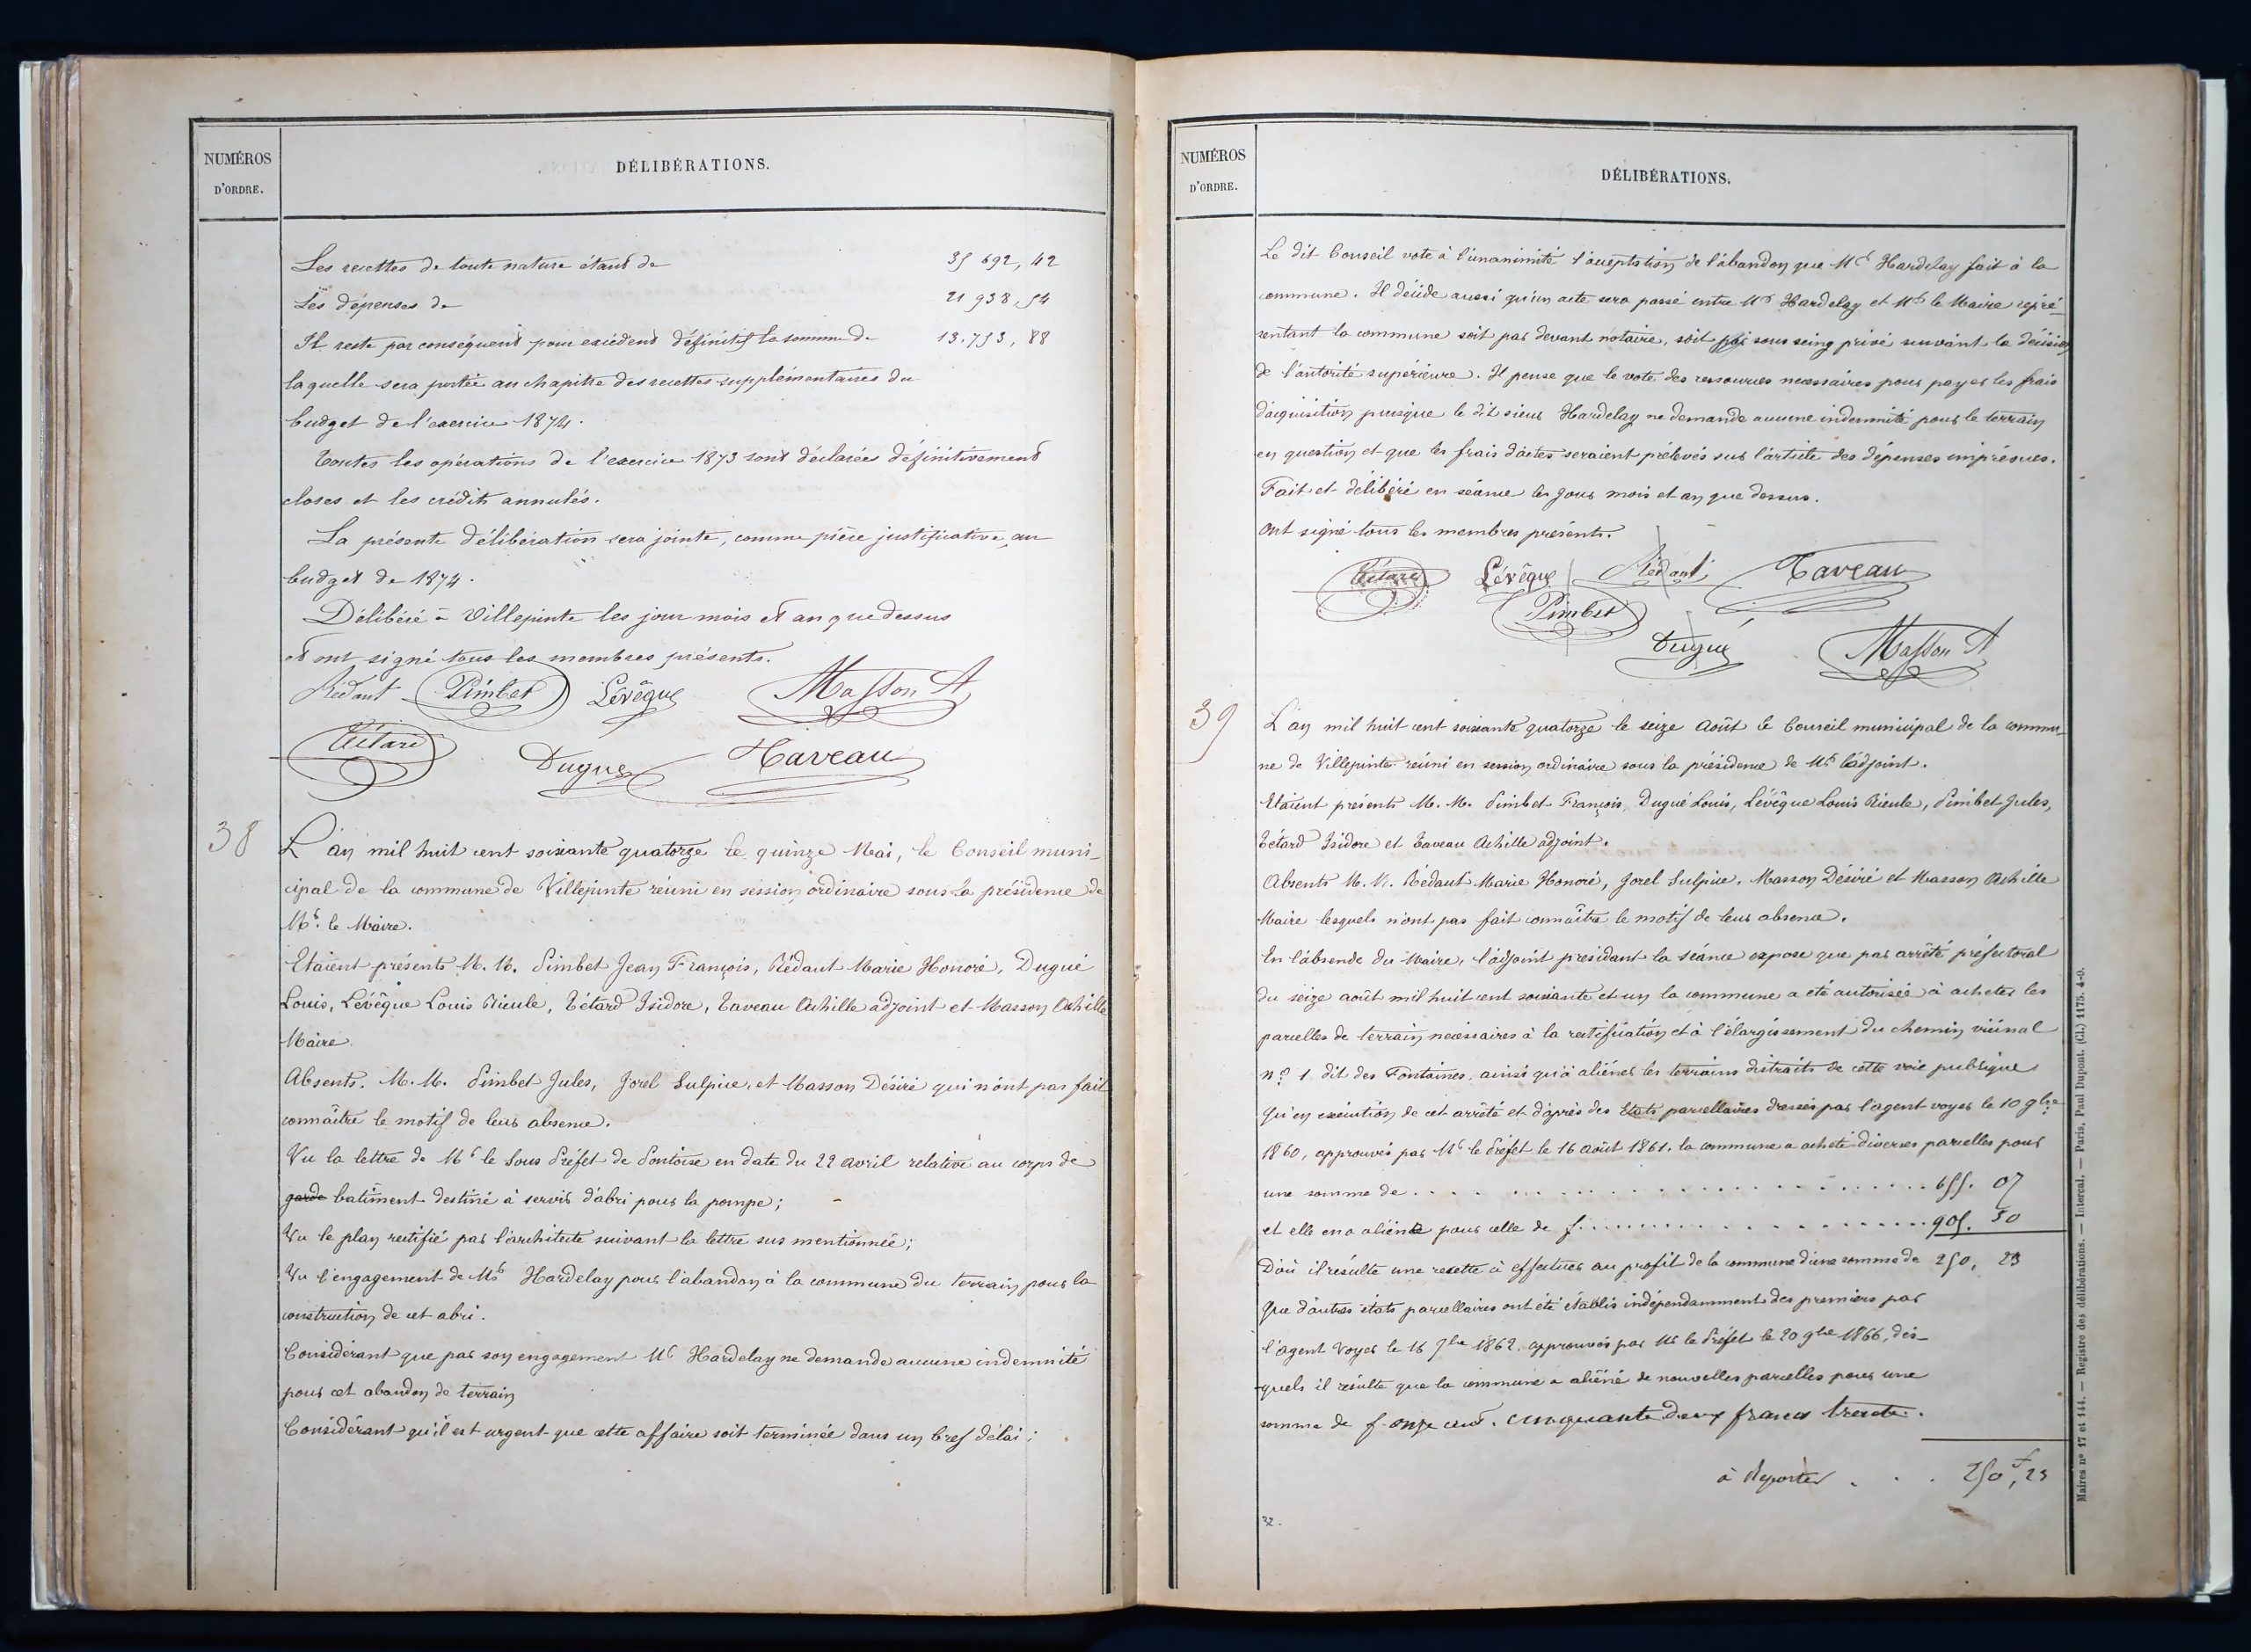 NUMÉROS
D'ORDRE.
DÉLIBÉRATIONS.
Les recettes de toute nature étant de 35 692, 42
Les dépenses de 21 938, 54
Il reste par conséquent pour excédent définitif la somme de 13.753, 88
laquelle sera portée au chapitre des recettes supplémentaires du
budget de l'exercice 1874.
Toutes les opérations de l'exercice 1873 sont déclarées définitivement
closes et les crédits annulés.
La présente délibération sera jointe, comme pièce justificative, au
budget de 1874.
Délibéré à Villepinte les jour mois et an que dessus
et ont signé tous les membres présents.
Rédaut Pimbet Lévêque Masson A
Tétard Dugué Taveau
38
L'an mil huit cent soixante quatorze le quinze Mai, le Conseil muni-
cipal de la commune de Villepinte réuni en session ordinaire sous la présidence de
Mr. le Maire.
Etaient présents M. M. Pimbet Jean François, Rédaut Marie Honoré, Dugué
Louis, Lévêque Louis Rieule, Tétard Isidore, Taveau Achille adjoint et Masson Achille
Maire
Absents. M. M. Pimbet Jules, Jorel Sulpice, et Masson Désiré qui n'ont pas fait
connaître le motif de leur absence.
Vu la lettre de Mr le Sous Préfet de Pontoise en date du 22 avril relative au corps de
garde batiment destiné à servir d'abri pour la pompe;
Vu le plan rectifié par l'architecte suivant la lettre sus mentionnée;
Vu l'engagement de Mr Hardelay pour l'abandon à la commune du terrain pour la
construction de cet abri.
Considérant que par son engagement Mr Hardelay ne demande aucune indemnité
pour cet abandon de terrain
Considérant qu'il est urgent que cette affaire soit terminée dans un bref délai;
NUMÉROS
D'ORDRE.
DÉLIBÉRATIONS.
Le dit Conseil vote à l'unanimité l'acceptation de l'abandon que Mr Hardelay fait à la
commune. Il décide aussi qu'un acte sera passé entre Mr Hardelay et Mr le Maire repré-
sentant la commune soit par devant notaire, soit par sous seing privé suivant la décision
de l'autorité supérieure. Il pense que le vote des ressources necessaires pour payer les frais
d'acquisition puisque le dit sieur Hardelay ne demande aucune indemnité pour le terrain
en question et que les frais d'actes seraient prélevés sur l'article des dépenses imprévues.
Fait et délibéré en séance les jour mois et an que dessus.
Ont signé tous les membres présents.
Tétard Lévêque Rédaut Taveau
Pimbet
Dugué Masson A
39
L'an mil huit cent soixante quatorze le seize Août le Conseil municipal de la commu-
ne de Villepinte réuni en session ordinaire sous la présidence de Mr l'adjoint.
Etaient présents M. M. Pimbet François, Dugué Louis, Lévêque Louis Rieule, Pimbet Jules,
Tétard Isidore et Taveau Achille adjoint.
Absents M. M. Rédaut Marie Honoré, Jorel Sulpice, Masson Désiré et Masson Achille
Maire lesquels n'ont pas fait connaître le motif de leur absence.
En l'absende du Maire, l'adjoint présidant la séance expose que par arrêté préfectoral
du seize août mil huit cent soixante et un la commune a été autorisée à acheter les
parcelles de terrain necessaires à la rectification et à l'élargissement du chemin vicinal
n° 1 dit des Fontaines, ainsi qu'à aliéner les terrains distraits de cette voie publique
Qu'en exécution de cet arrêté et d'après des Etats parcellaires dressés par l'agent voyer le 10 9bre
1860, approuvés par Mr le Préfet le 16 août 1861, la commune a acheté diverses parcelles pour
une somme de . . . . . . . . . . . . . . . . 655. 07
et elle en a aliéné pour celle de f. . . . . . . . . . . . . . . . 905. 30
D'où il résulte une recette à effectuer au profit de la commune d'une somme de 250, 23
Que d'autres états parcellaires ont été établis indépendamment des premiers par
l'agent voyer le 16 7bre 1862, approuvés par Mr le Préfet le 20 9bre 1866, des-
quels il résulte que la commune a aliéné de nouvelles parcelles pour une
somme de f. onze cent. cinquante deux francs trente.
à Reporter . . . 250f, 23
32.
Maires nos 17 et 144. — Registre des délibérations. — Intercal. — Paris, Paul Dupont. (Cl.) 1175. 4-0.